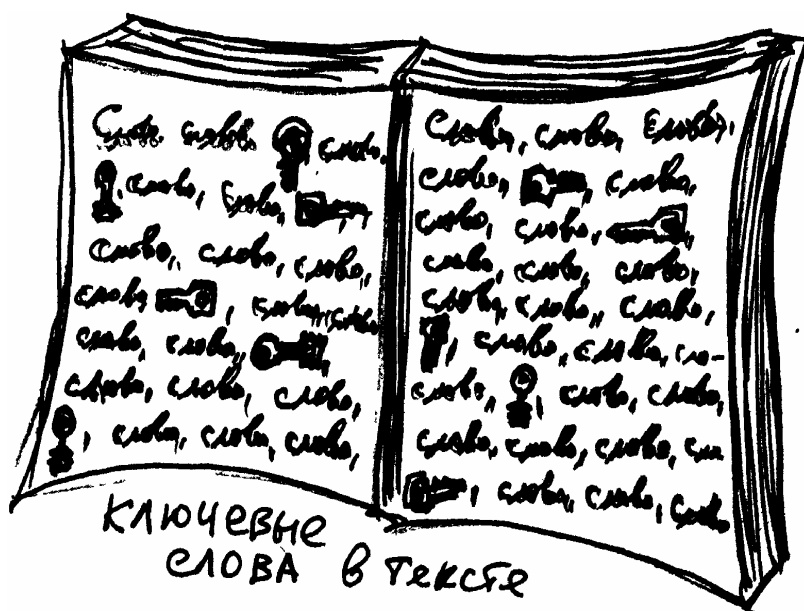 слово, слово, слово,
слово, слово,
слово, слово, слово,
слово, слово, слово
слово, слово,
слово, слово, слово,
слово, слово, слово,
слово, слово, слово,
слово, слово,
слово, слово,
слово, слово, слово,
слово, слово, слово,
слово, слово, сло-
слово, слово, слово,
слово, слово, слово, сл
слово, слово, слово
ключевые
слова в тексте